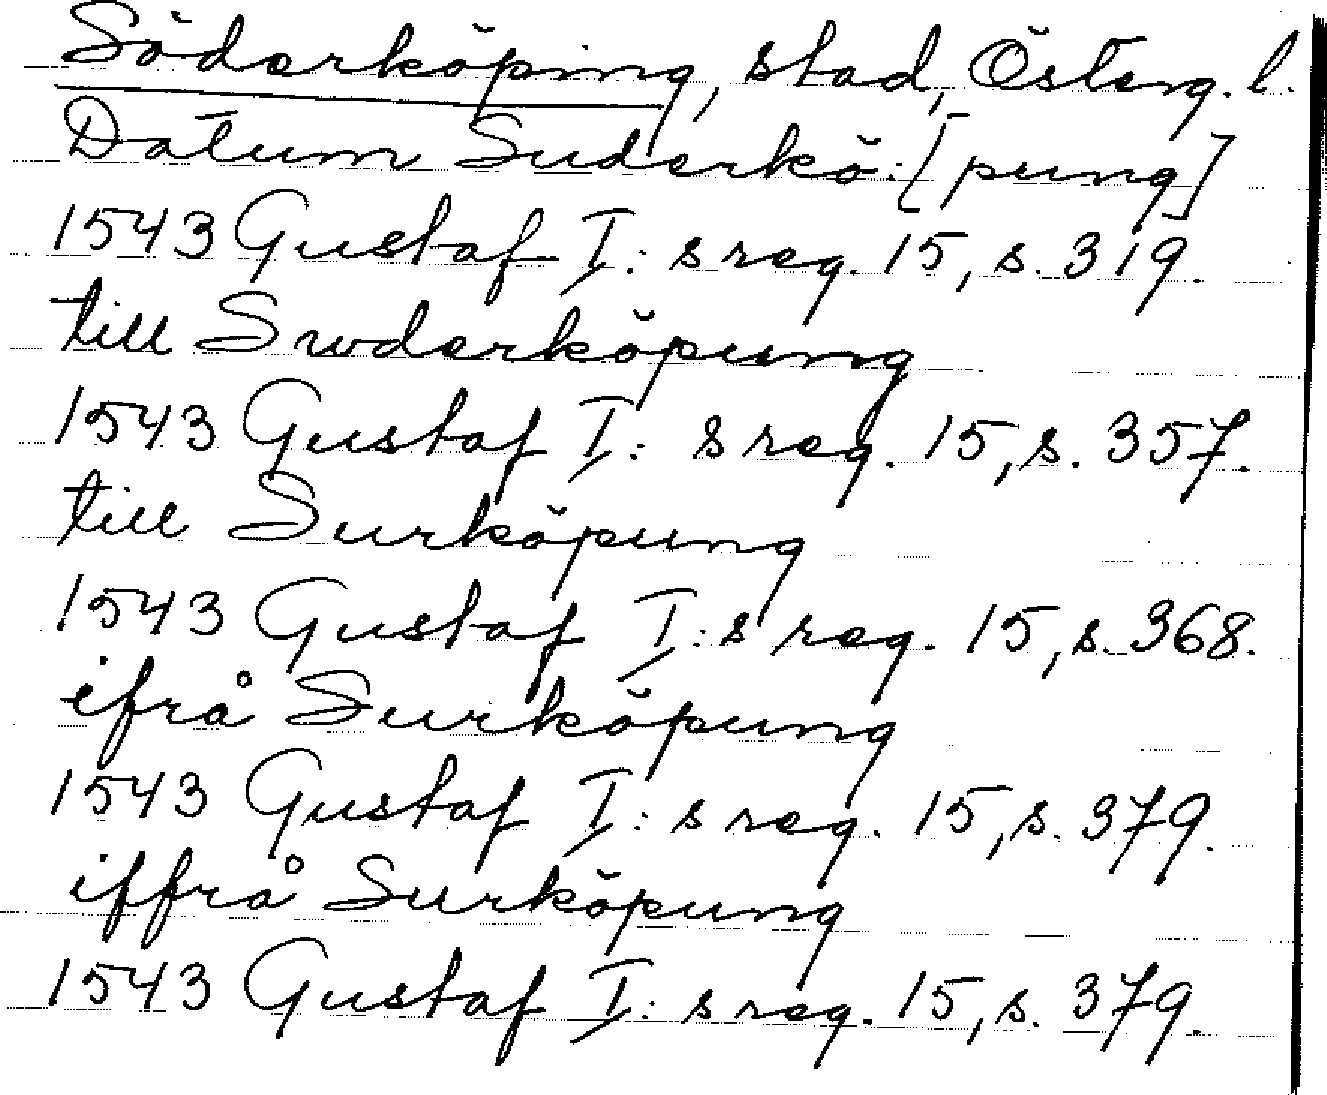 Söderköping, stad, Österg. l.
Datum Suderkö: [pung]
1543 Gustaf I: s reg. 15, s. 319.
till Swderköpung
1543 Gustaf I: s reg. 15, s. 357.
till Surköpung
1543 Gustaf I: s reg. 15, s. 368.
ifrå Surköpung
1543 Gustaf I: s reg. 15, s. 379.
iffrå Surköpung
1543 Gustaf I: s reg. 15, s. 379.